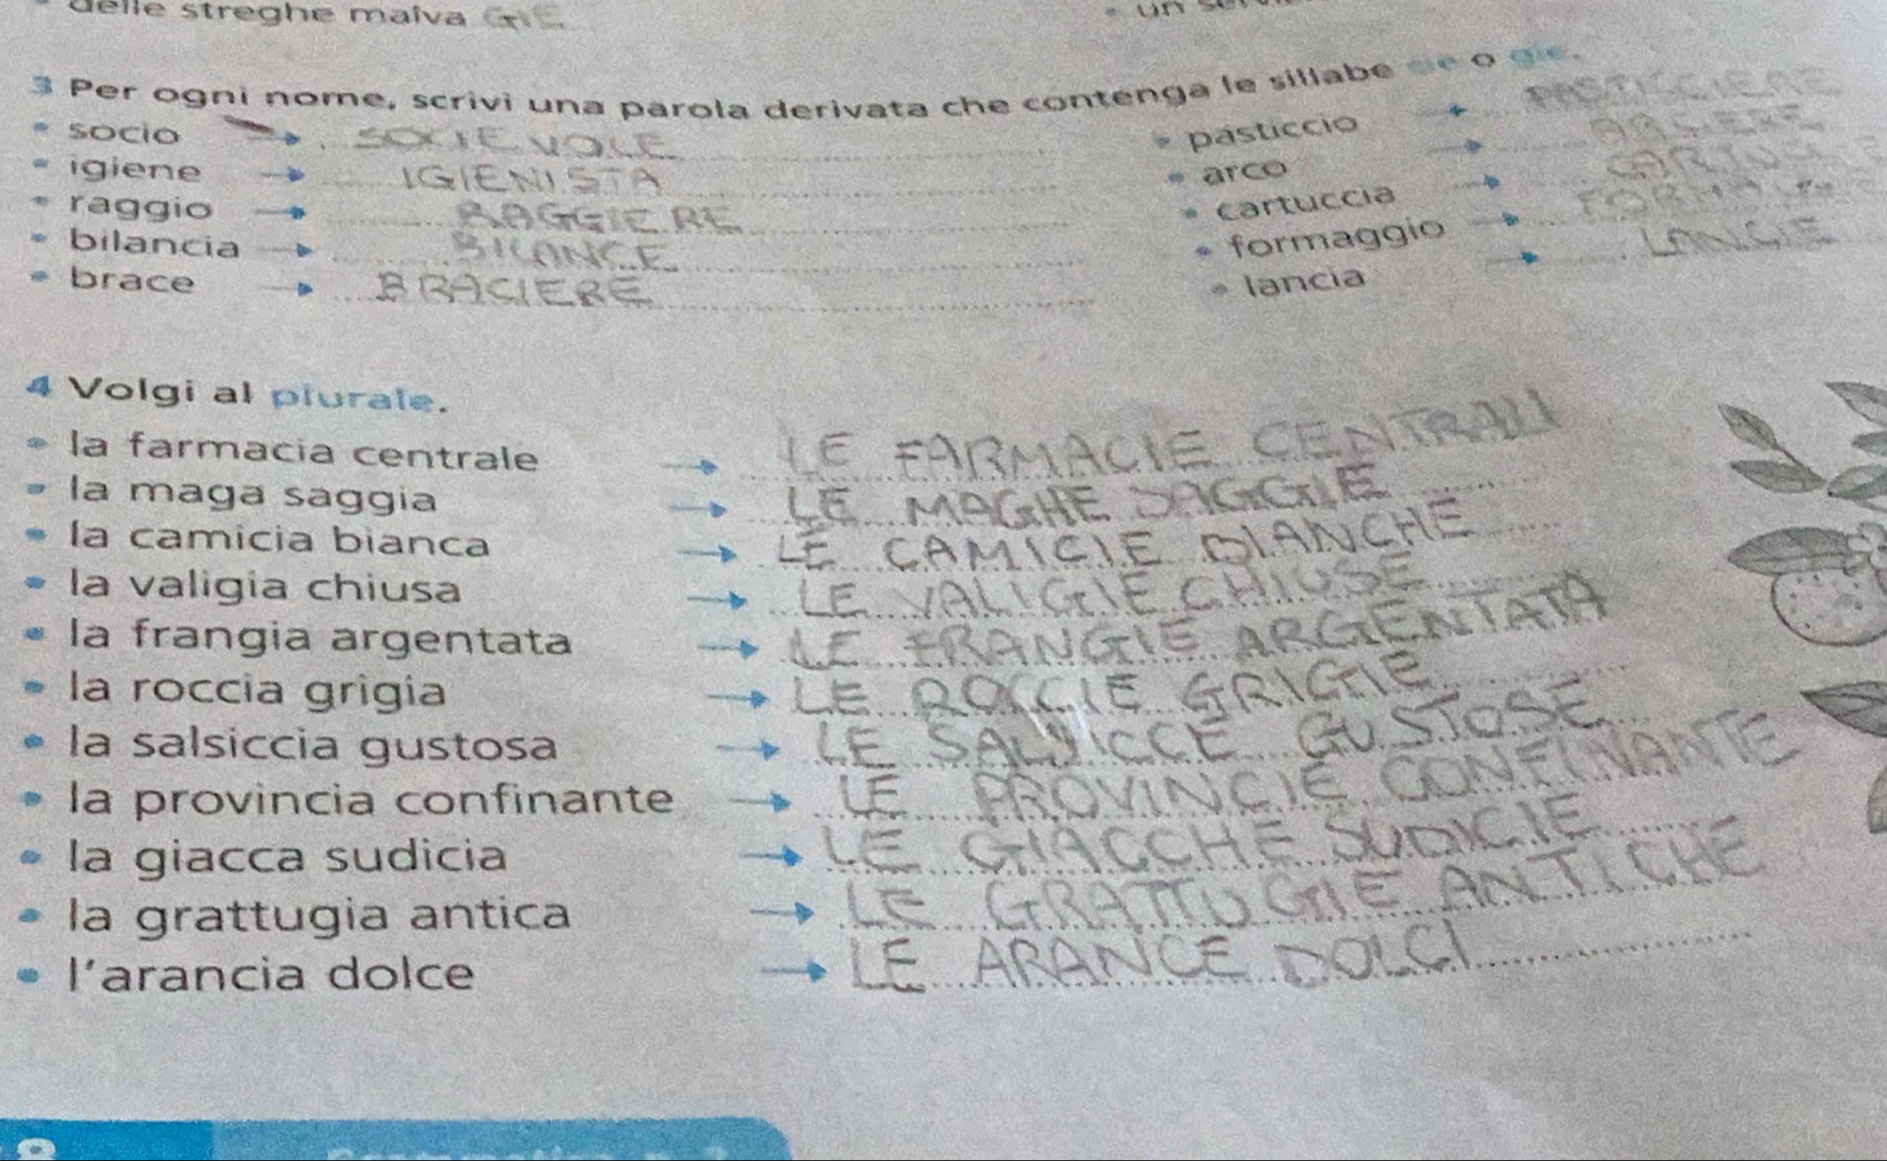 delle streghe malva GIE
un
3 Per ogni nome, scrivi una parola derivata che contenga le sillabe cie o gie.
socio SOCIEVOLE
igiene IGIENISTA
raggio RAGGIERE
bilancia BILANCE
brace BRACIERE
pasticcio PASTICCIERE
arco
cartuccia
formaggio
lancia LANCIE
4 Volgi al plurale.
la farmacia centrale LE FARMACIE CENTRALI
la maga saggia LE MAGHE SAGGIE
la camicia bianca LE CAMICIE BIANCHE
la valigia chiusa LE VALIGIE CHIUSE
la frangia argentata LE FRANGIE ARGENTATA
la roccia grigia LE ROCCIE GRIGIE
la salsiccia gustosa LE SALSICCE GUSTOSE
la provincia confinante LE PROVINCIE CONFINANTE
la giacca sudicia LE GIACCHE SUDICIE
la grattugia antica LE GRATTUGIE ANTICHE
l'arancia dolce LE ARANCE DOLCI
8